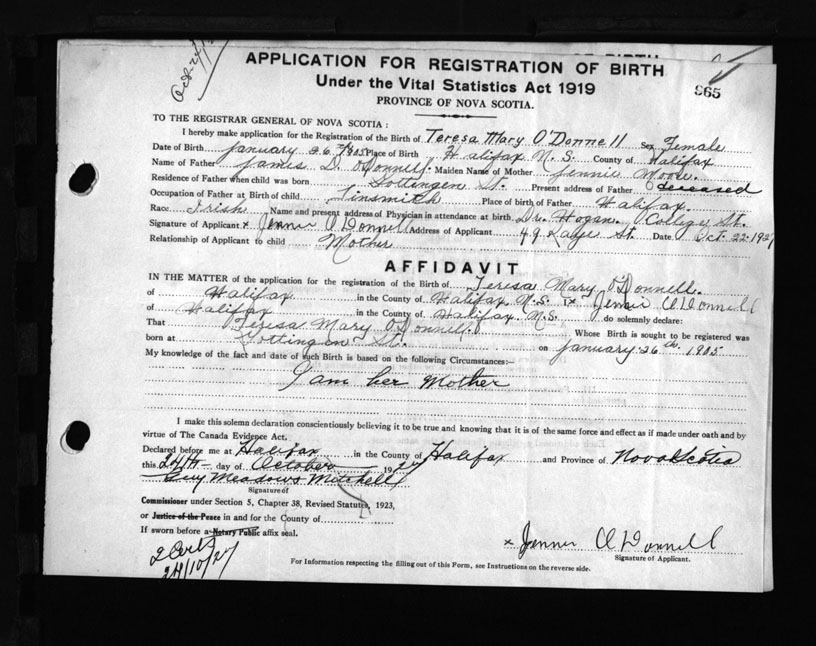 Oct. 24/
APPLICATION FOR REGISTRATION OF BIRTH
Under the Vital Statistics Act 1919
965
PROVINCE OF NOVA SCOTIA.
TO THE REGISTRAR GENERAL OF NOVA SCOTIA :
I hereby make application for the Registration of the Birth of Teresa Mary O'Donnell Sex Female
Date of Birth January 26 1905 Place of Birth Halifax N. S. County of Halifax
Name of Father James D. O'Donnell. Maiden Name of Mother Jennie Moore.
Residence of Father when child was born Gottingen St. Present address of Father Deceased
Occupation of Father at Birth of child Tinsmith Place of birth of Father Halifax.
Race Irish Name and present address of Physician in attendance at birth Dr. Hogan. College St.
Signature of Applicant x Jennie O'Donnell Address of Applicant 49 St. Date Oct. 22. 1927
Relationship of Applicant to child Mother
AFFIDAVIT
IN THE MATTER of the application for the registration of the Birth of Teresa Mary O'Donnell.
of Halifax in the County of Halifax N.S. I x Jennie O'Donnell
of Halifax in the County of Halifax N.S. do solemnly declare:
That Teresa Mary O'Donnell. Whose Birth is sought to be registered was
born at Gottingen St. on January 26th. 1905
My knowledge of the fact and date of such Birth is based on the following Circumstances:—
I am her Mother
I make this solemn declaration conscientiously believing it to be true and knowing that it is of the same force and effect as if made under oath and by
virtue of The Canada Evidence Act.
Declared before me at Halifax in the County of Halifax and Province of Nova Scotia
this 24th day of October 1927
Guy Meadows Mitchell
Signature of
Commissioner under Section 5, Chapter 38, Revised Statutes, 1923,
or Justice of the Peace in and for the County of
If sworn before a Notary Public affix seal.
x Jennie O'Donnell
Signature of Applicant.
24/10/27
For Information respecting the filling out of this Form, see Instructions on the reverse side.